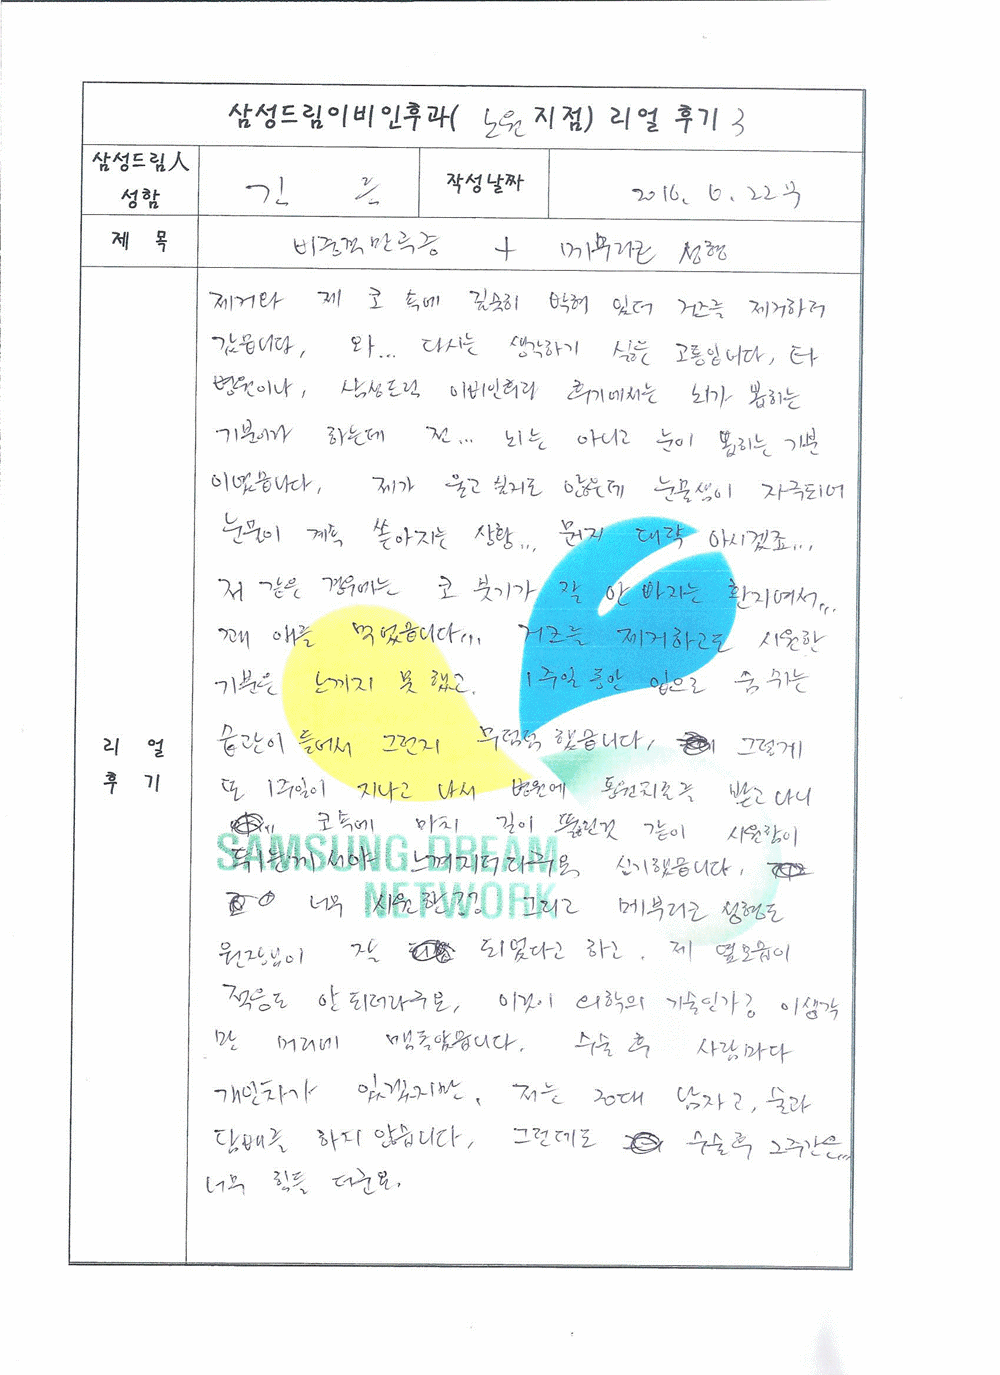 삼성드림이비인후과( 노원 지점) 리얼 후기 3
삼성드림人
성함
김 은
작성날짜
2016. 6. 22
제 목
비중격만곡증 + 매부리코 성형
리 얼
후 기
제거와 제 코 속에 깊숙히 박혀 있던 거즈를 제거하러
갔습니다, 와... 다시는 생각하기 싫은 고통입니다, 타
병원이나, 삼성드림 이비인후과 후기에서는 뇌가 뽑히는
기분이라 하는데 전... 뇌는 아니고 눈이 뽑히는 기분
이었습니다, 제가 울고 싶지도 않은데 눈물샘이 자극되어
눈물이 계속 쏟아지는 상황... 뭔지 대략 아시겠죠...
저 같은 경우에는 코 붓기가 잘 안 빠지는 환자여서...
꽤 애를 먹었습니다... 거즈를 제거하고도 시원한
기분은 느끼지 못 했고, 1주일 동안 입으로 숨 쉬는
습관이 들어서 그런지 무덤덤 했습니다, 그렇게
또 1주일이 지나고 나서 병원에 통원치료를 받고 나니
코속에 마치 길이 뚫린것 같이 시원함이
느껴지더라구요 신기했습니다,
너무 시원한 그리고 매부리코 성형도
원장님이 잘 되었다고 하고, 제 옆모습이
적응도 안 되더라구요, 이것이 의학의 기술인가; 이생각
만 머리에 맴돌았습니다. 수술 후 사람마다
개인차가 있겠지만, 저는 20대 남자고, 술과
담배를 하지 않습니다, 그런데도 수술후 2주간은...
너무 힘들 더군요.
SAMSUNG DREAM
NETWORK